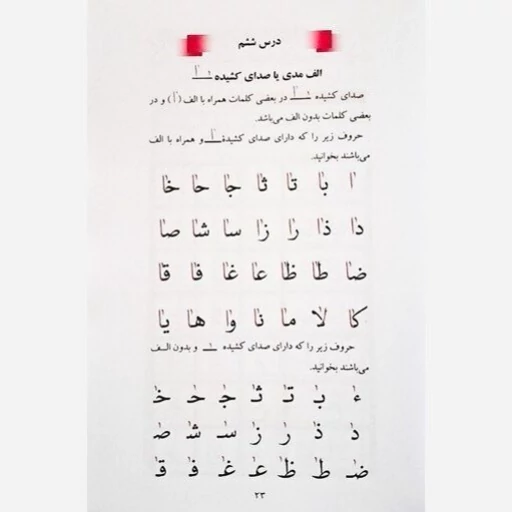 درس ششم
الف مدی یا صدای کشیده ـــٰا
صدای کشیده ـــٰا در بعضی کلمات همراه با الف (ٰا) و در
بعضی کلمات بدون الف می‌باشد.
حروف زیر را که دارای صدای کشیدهٔ ـــٰا و همراه با الف
می‌باشند بخوانید.
ٰا بٰا تٰا ثٰا جٰا حٰا خٰا
دٰا ذٰا رٰا زٰا سٰا شٰا صٰا
ضٰا طٰا ظٰا عٰا غٰا فٰا قٰا
کٰا لٰا مٰا نٰا وٰا هٰا یٰا
حروف زیر را که دارای صدای کشیده ـــٰ و بدون الـف
می‌باشند بخوانید.
ءٰ بٰـ تٰـ ثٰـ جٰـ حٰـ خٰـ
دٰ ذٰ رٰ زٰ سٰـ شٰـ صٰـ
ضٰـ طٰـ ظٰـ عٰـ غٰـ فٰـ قٰـ
۲۳